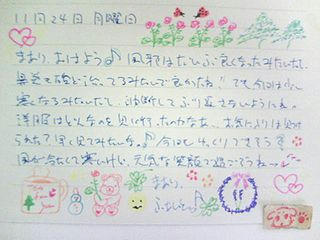 11月24日 月曜日
まおり、おはよう♪ 風邪はだいぶ良くなったみたいだし、
鼻炎も 治ってるみたいで良かったね!! でも今日は
寒くなるみたいだし、油断してぶり返さないようにね。
洋服はどんなのを見に行ったのかなぁ、お気に入りは見つけ
られた? 早く見てみたいな。♪ 今日もゆっくりできそう?
雨が冷たくて寒いけど、元気な笑顔で過ごそうね〜
まおり。